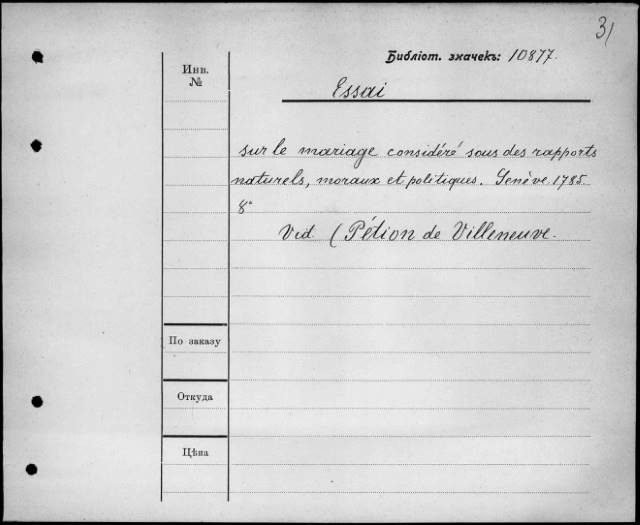 3)
Библіот. значекъ: 10877.
Инв.
№
Essai
sur le mariage considéré sous des rapports
naturels, moraux et politiques. Genève 1785
8°
Vid. (Pétion de Villeneuve.
По заказу
Откуда
Цѣна